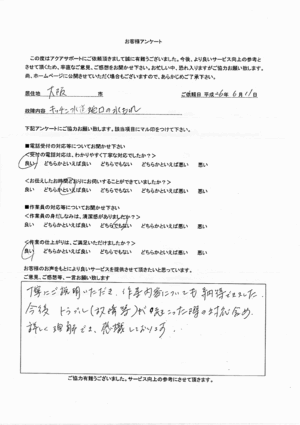 お客様アンケート
この度はアクアサポートにご依頼頂きまして誠に有難うございました。今後、より良いサービス向上の参考と
させて頂くため、率直なご意見、ご感想をお聞かせ下さい。お忙しい中、恐れ入りますがご協力お願い致します。
尚、ホームページに公開させていただく場合もございますので、あらかじめご了承下さい。
居住地 大阪 市 ご依頼日 平成26年 6月11日
故障内容 キッチン水道蛇口の水もれ
下記アンケートにご協力お願い致します。該当項目にマル印をつけて下さい。
■電話受付の対応等についてお聞かせ下さい
<受付の電話対応は、わかりやすく丁寧な対応でしたか?>
良い どちらかといえば良い どちらでもない どちらかといえば悪い 悪い
<お伝えしたお時間どおりにお伺いすることができていましたか?>
良い どちらかといえば良い どちらでもない どちらかといえば悪い 悪い
■作業員の対応等についてお聞かせ下さい
<作業員の身だしなみは、清潔感がありましたか?>
良い どちらかといえば良い どちらでもない どちらかといえば悪い 悪い
<作業の仕上がりは、ご満足いただけましたか?>
良い どちらかといえば良い どちらでもない どちらかといえば悪い 悪い
お客様のお声をもとにより良いサービスを提供させて頂きたいと思っています。
ご意見、ご感想等、一言お願い致します
丁寧にご説明いただき、作業内容についても納得できました。
今後 トラブル(故障等)が起こった時の対応含め、
詳しく理解でき、感謝しております。
ご協力有難うございました。サービス向上の参考にさせて頂きます。